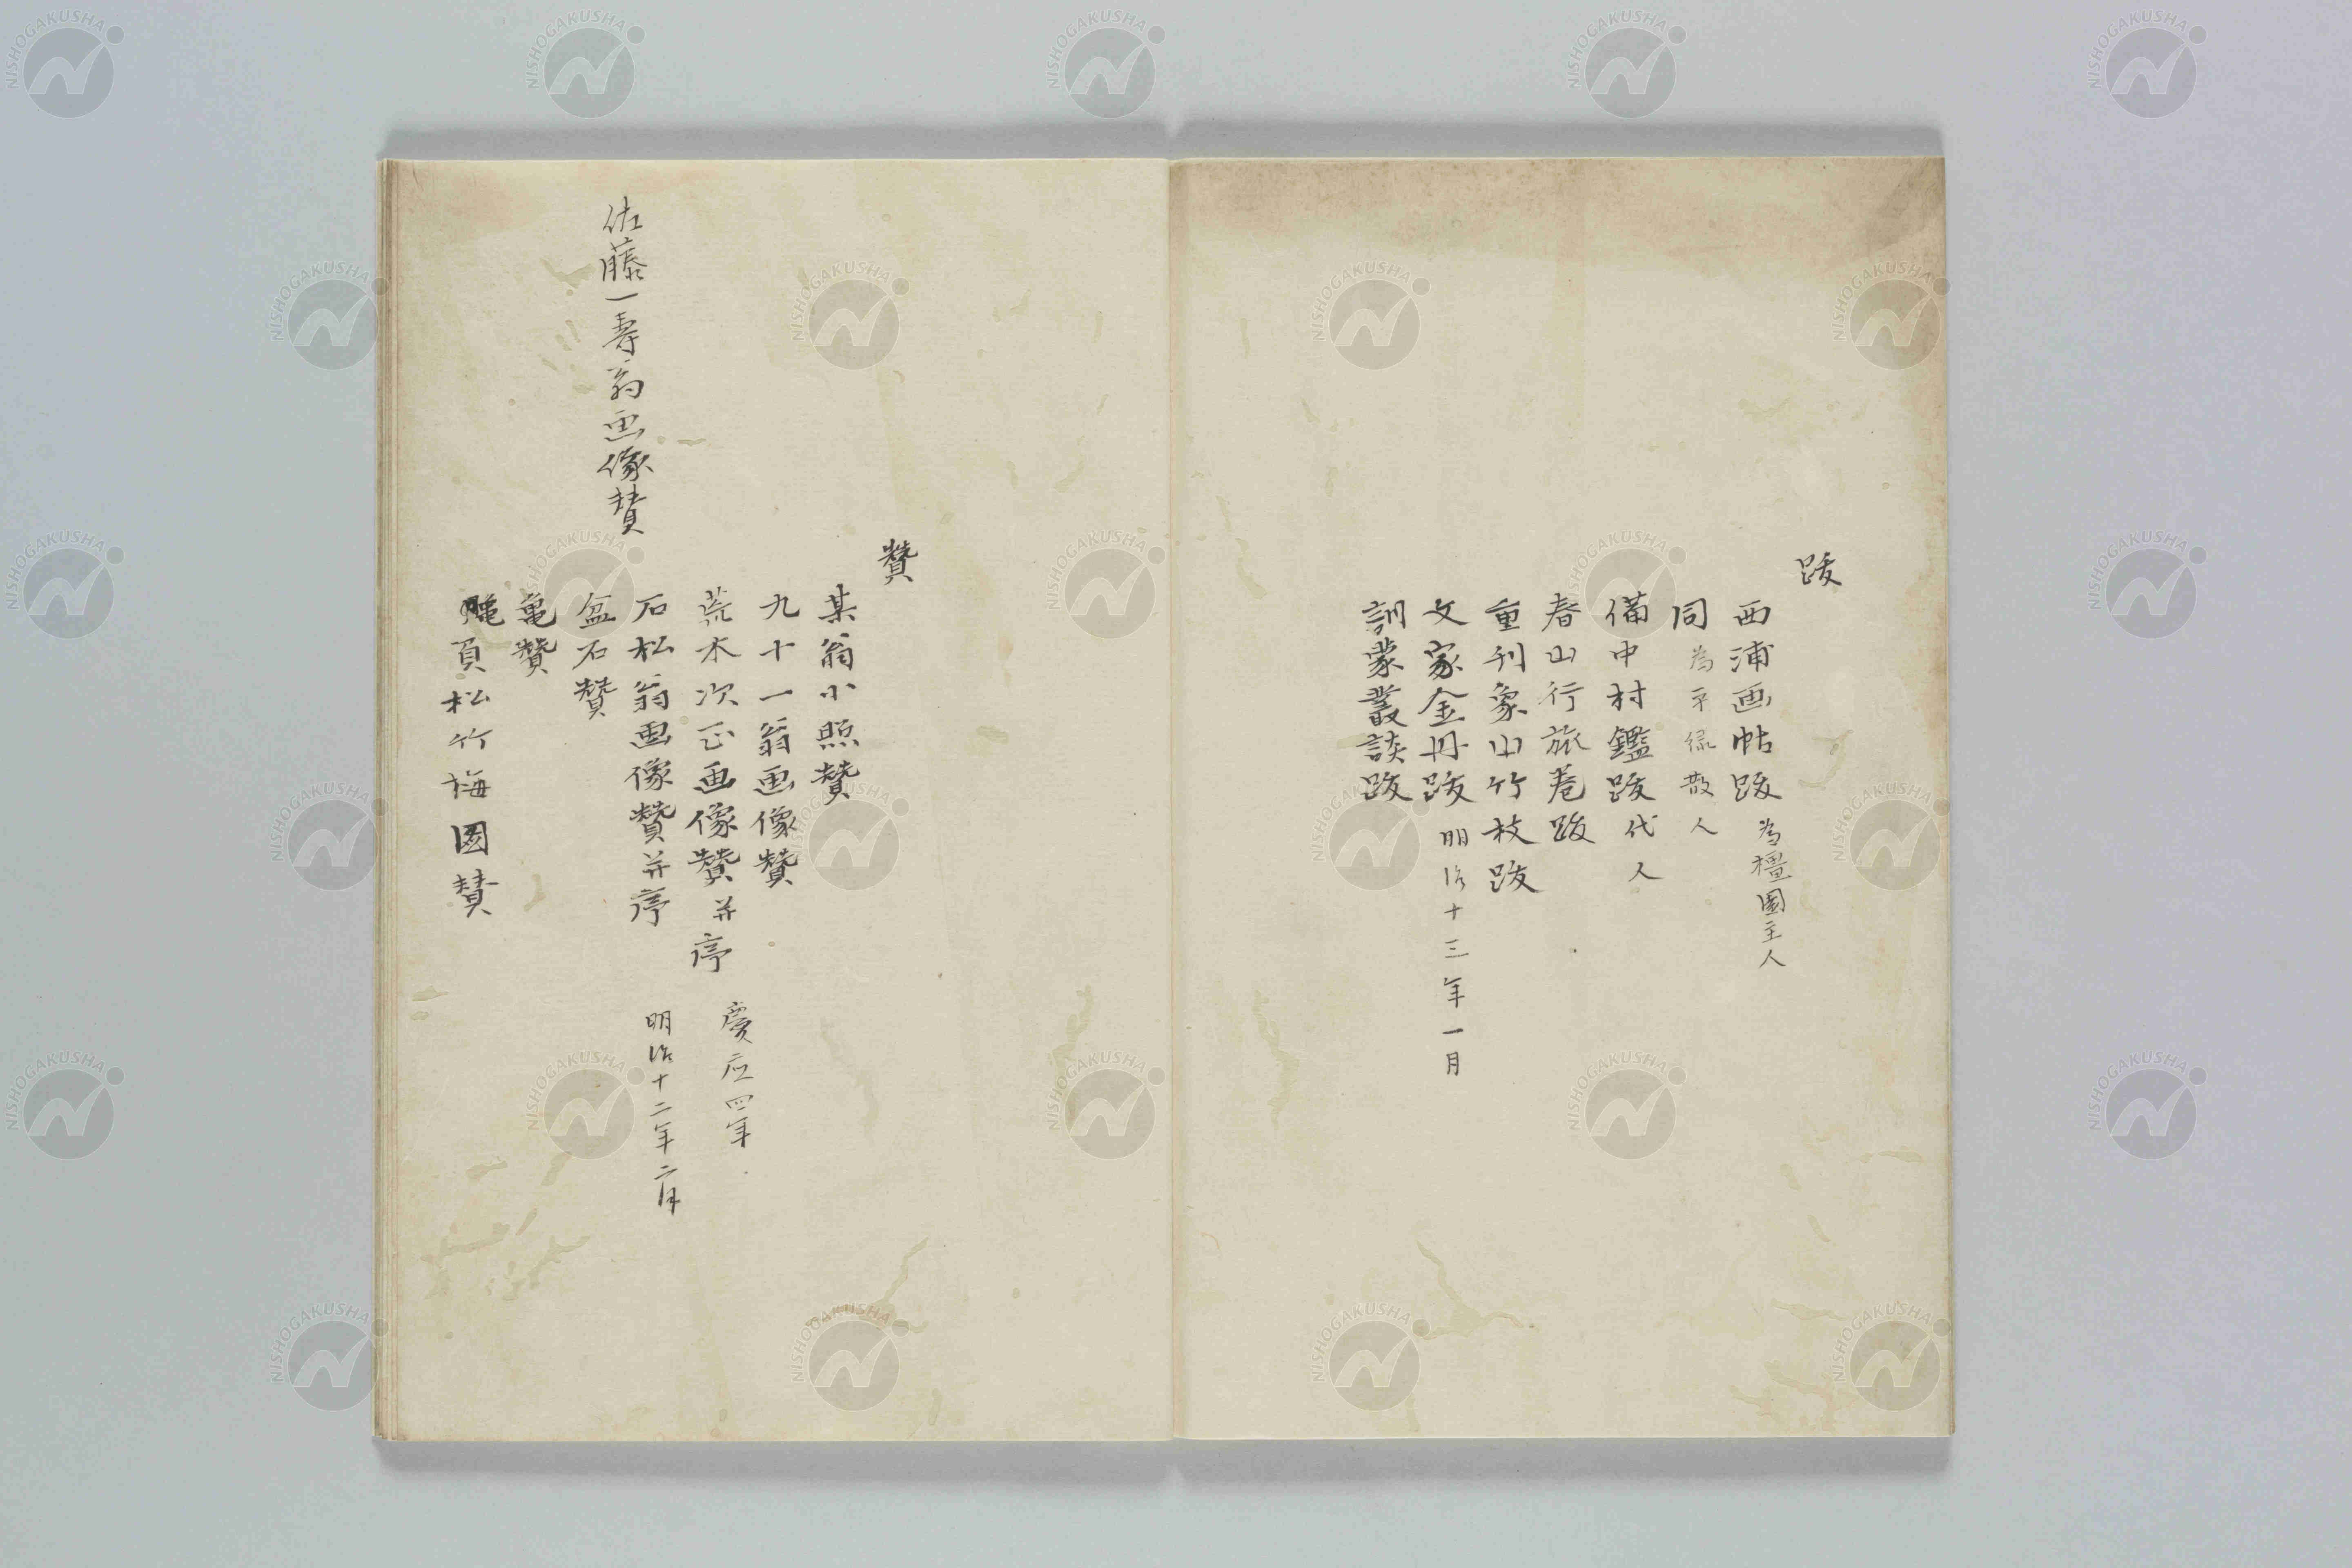 跋
西浦画帖跋 為橿園主人
同 為平緑散人
備中村鑑跋代人
春山行旅巻跋
重刊象山竹枝跋
文家金丹跋 明治十三年一月
訓蒙叢談跋
賛
某翁小照賛
九十一翁画像賛
荒木次正画像賛并序 慶応四年
石松翁画像賛并序 明治十二年二月
佐藤一寿翁画像賛
盆石賛
亀賛
亀負松竹梅図賛
NISHOGAKUSHA